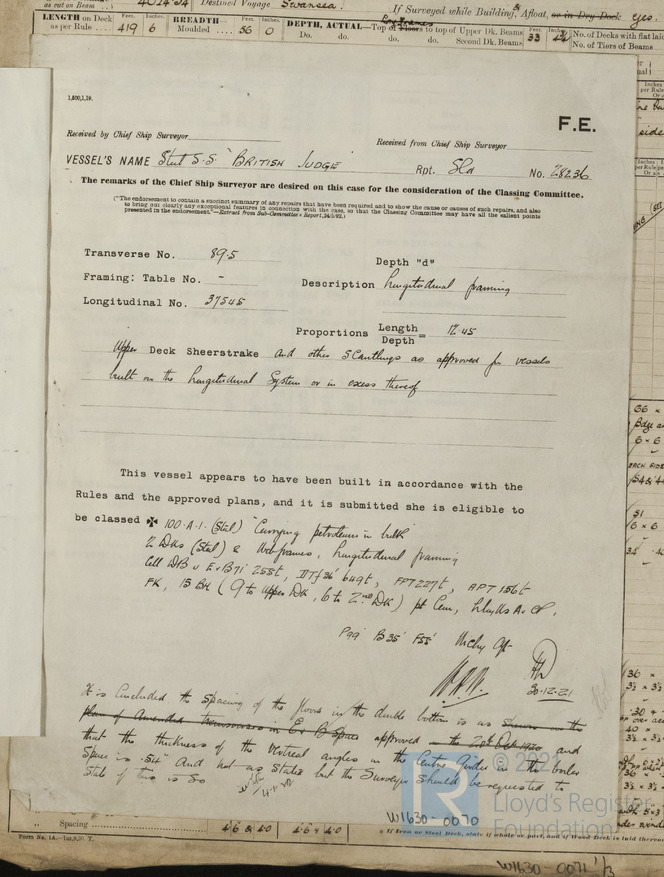 as cut on Beam 4014.54 Destined Voyage Swansea. If Surveyed while Building, & Afloat, or in Dry Dock yes.
LENGTH on Deck as per Rule Feet. 419 Inches. 6 BREADTH Moulded Feet. 56 Inches. 0 DEPTH, ACTUAL—Top of Floors to top of Upper Dk. Beams Feet. 33 Inches. No. of Decks with flat laid
Do. do. do. do. Second Dk. Beams No. of Tiers of Beams
1,500,1,19.
F.E.
Received by Chief Ship Surveyor
Received from Chief Ship Surveyor
VESSEL'S NAME Steel S.S. "BRITISH JUDGE" Rpt. Sld No. 28236
The remarks of the Chief Ship Surveyor are desired on this case for the consideration of the Classing Committee.
("The endorsement to contain a succinct summary of any repairs that have been required and to show the cause or causes of such repairs, and also
to bring out clearly any exceptional features in connection with the case, so that the Classing Committee may have all the salient points
presented in the endorsement."—Extract from Sub-Committee's Report,
Transverse No. 89.5
Depth "d"
Framing: Table No. -
Description Longitudinal framing
Longitudinal No. 37545
Proportions Length/Depth = 12.45
Upper Deck Sheerstrake and other Scantlings as approved for vessels
built on the Longitudinal System or in excess thereof
This vessel appears to have been built in accordance with the
Rules and the approved plans, and it is submitted she is eligible to
be classed ✠ 100.A.1. (Steel) "Carrying petroleum in bulk
2 Dks (Steel) & Webframes, Longitudinal framing
Cell DB u E&B 71' 255t, DTf 36' 649t, FPT 227t, APT 156t
FK, 15 BH (9 to Upper Dk, 6 to 2nd Dk) pt Cem, Lloyds A&CP.
Pqq B35' F55' Mchy Aft
20-12-21
It is concluded the spacing of the floors in the double bottom is as shewn on the
plan of Amended transverses in E & B Space approved the 20th Oct 1920 and
that the thickness of the vertical angles on the Centre Girder in the boiler
Space is .54" and not as stated but the Surveyor should be requested to
state if this is so
© 2021
Lloyd's Register
Foundation
W1630-0070
Spacing 46 & 40 46 & 40
Form No. 1A.
If Iron or Steel Deck, state if whole or part, and if Wood Deck is laid thereon
W1630-0071 1/3